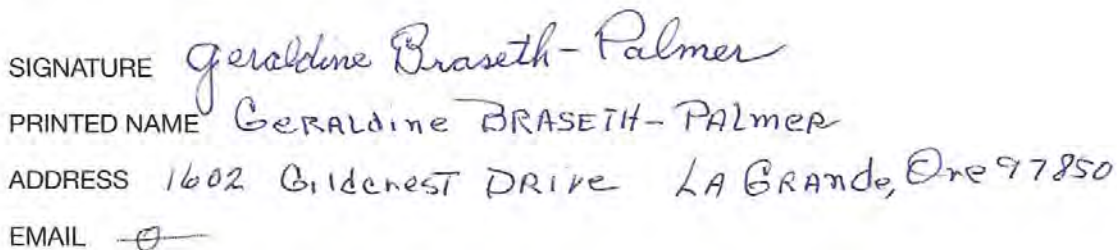 SIGNATURE Geraldine Braseth-Palmer
PRINTED NAME GeRALdine BRASETH-PALmeR
ADDRESS 1602 GildcresT DRIve LA GRAnde, Ore 97850
EMAIL -0-